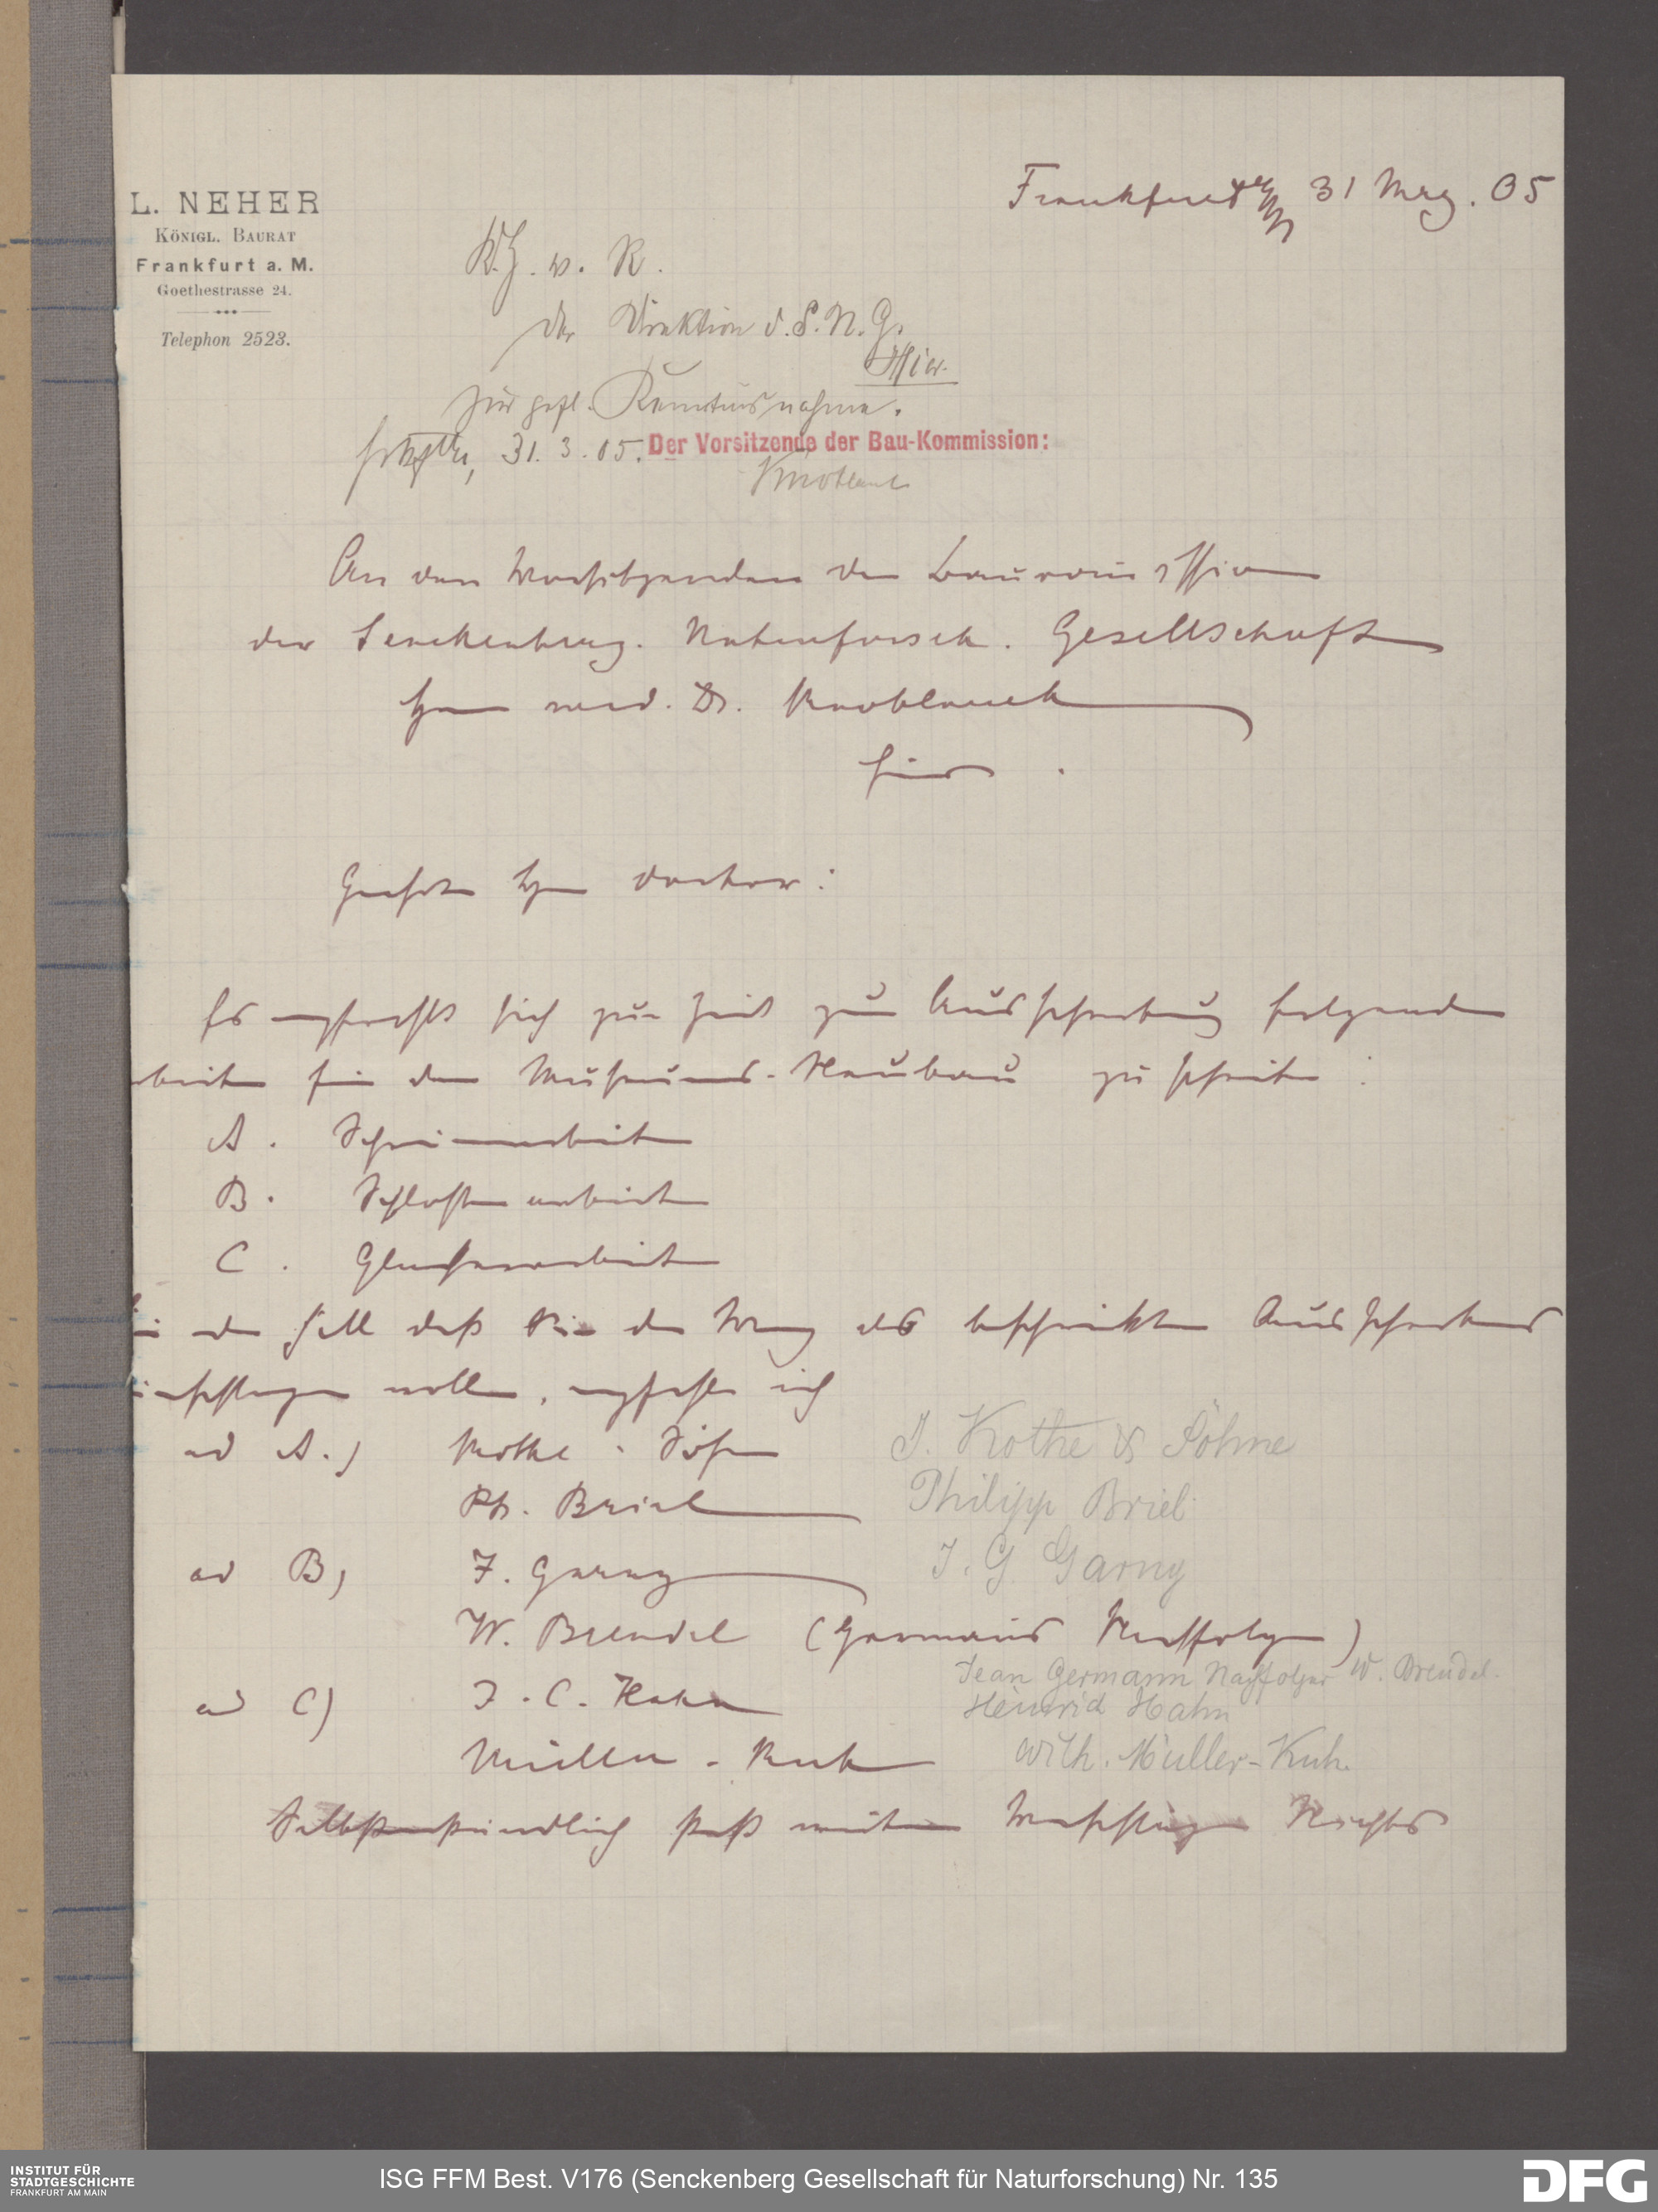 L. NEHER
KÖNIGL. BAURAT
Frankfurt a. M.
Goethestrasse 24.
Telephon 2523.
Frankfurt a/M 31 Mrz. 05
U. z. w. R.
der Direktion d. S. N. G.
Hier.
zur gefl. Kenntnisnahme.
31. 3. 05. Der Vorsitzende der Bau-Kommission:
Knoblauch
An den Vorsitzenden der Baucommission
der Senckenberg. Naturforsch. Gesellschaft
Herrn med. Dr. Knoblauch
hier.
Geehrter Herr Doctor:
Es empfiehlt sich zur Zeit zur Ausschreibung folgender
Arbeiten für den Museums-Neubau zu schreiten:
A. Schreinerarbeiten
B. Schlosserarbeiten
C. Glaserarbeiten
den Fall daß Sie den Weg des beschränkten Ausschreibens
einschlagen wollen, empfehle ich
ad A.) Kothe & Söhne J. Kothe & Söhne
Ph. Briel Philipp Briel
ad B) F. Garny J. G. Garny
W. Brendel (Germanns Nachfolger)
Jean Germann Nachfolger W. Brendel.
ad C) J. C. Hahn Heinrich Hahn
Müller-Kuh Wilh. Müller-Kuh.
Selbstverständlich steht weiteren Vorschlägen Nichts
INSTITUT FÜR
STADTGESCHICHTE
FRANKFURT AM MAIN
ISG FFM Best. V176 (Senckenberg Gesellschaft für Naturforschung) Nr. 135
DFG